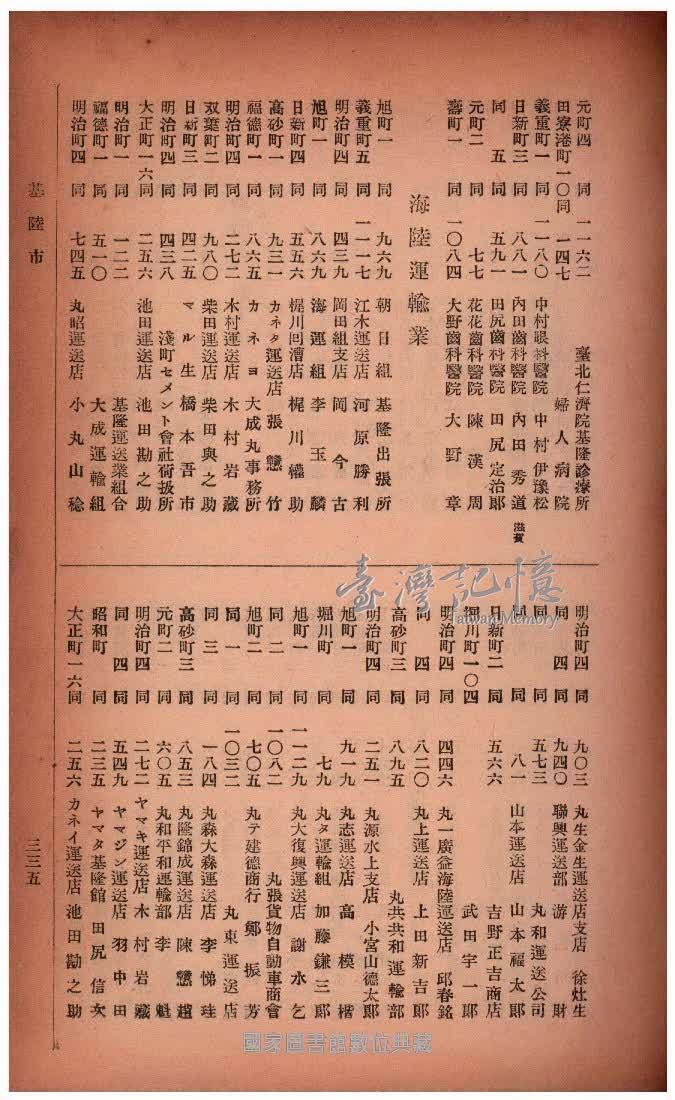 元町四 同 一一六二 臺北仁濟院基隆診療所
田寮港町一〇同 一四七 婦人病院
義重町一 同 一一八〇 中村眼科醫院 中村伊豫松
日新町三 同 八八一 內田齒科醫院 內田秀道 滋賀
同 五 同 五九一 田尻齒科醫院 田尻定治郎
元町二 同 七七 花花齒科醫院 陳漢周
壽町一 同 一〇八四 大野齒科醫院 大野章
海陸運輸業
旭町一 同 九六九 朝日組基隆出張所
義重町五 同 一一一七 江木運送店 河原勝利
明治町四 同 四三九 岡田組支店 岡今古
旭町一 同 八六九 海運組 李玉麟
日新町四 同 五五六 梶川回漕店 梶川權助
高砂町一 同 九三一 カネタ運送店 張戇竹
福德町一 同 八六五 カネヨ大成丸事務所
明治町四 同 二七二 木村運送店 木村岩藏
双葉町二 同 九八〇 柴田運送店 柴田與之助
日新町三 同 四二五 マル生 橋本吾市
明治町四 同 四三八 淺町セメント會社荷扱所
大正町一六同 二五六 池田運送店 池田勘之助
明治町一 同 一二二 基隆運送業組合
福德町一 同 五一〇 大成運輸組
明治町四 同 七四五 丸昭運送店 小丸山稔
明治町四 同 九〇三 丸生金生運送店支店 徐灶生
同 四 同 九四〇 聯興運送部 游財
同 同 五七三 丸和運送公司
同 同 八一 山本運送店 山本福太郎
日新町二 同 五六六 吉野正吉商店
堀川町一〇四 武田宇一郎
明治町四 同 四四六 丸一廣益海陸運送店 邱春銘
同 四 同 八二〇 丸上運送店 上田新吉郎
高砂町三 同 八九五 丸共共和運輸部
明治町四 同 二五一 丸源水上支店 小宮山德太郎
旭町一 同 九一九 丸志運送店 高模楷
堀川町 同 七九 丸タ運輸組 加藤鎌三郎
旭町一 同 一一二九 丸大復興運送店 謝水乞
同 二 同 一〇八二 丸張貨物自動車商會
旭町二 同 七〇五 丸テ建德商行 鄭振芳
同 一 同 一〇三二 丸東運送店
同 三 同 一八四 丸森大森運送店 李悌珪
高砂町三 同 八五三 丸隆錦成運送店 陳戇趙
元町二 同 六〇五 丸和平和運輸部 李魁
明治町四 同 二七二 ヤマキ運送店 木村岩藏
同 四 同 五四九 ヤマジン運送店 羽中田
昭和町 同 二三五 ヤマタ基隆館 田尻信次
大正町一六同 二五六 カネイ運送店 池田勘之助
基隆市
三三五
臺灣記憶
Taiwan Memory
國家圖書館數位典藏